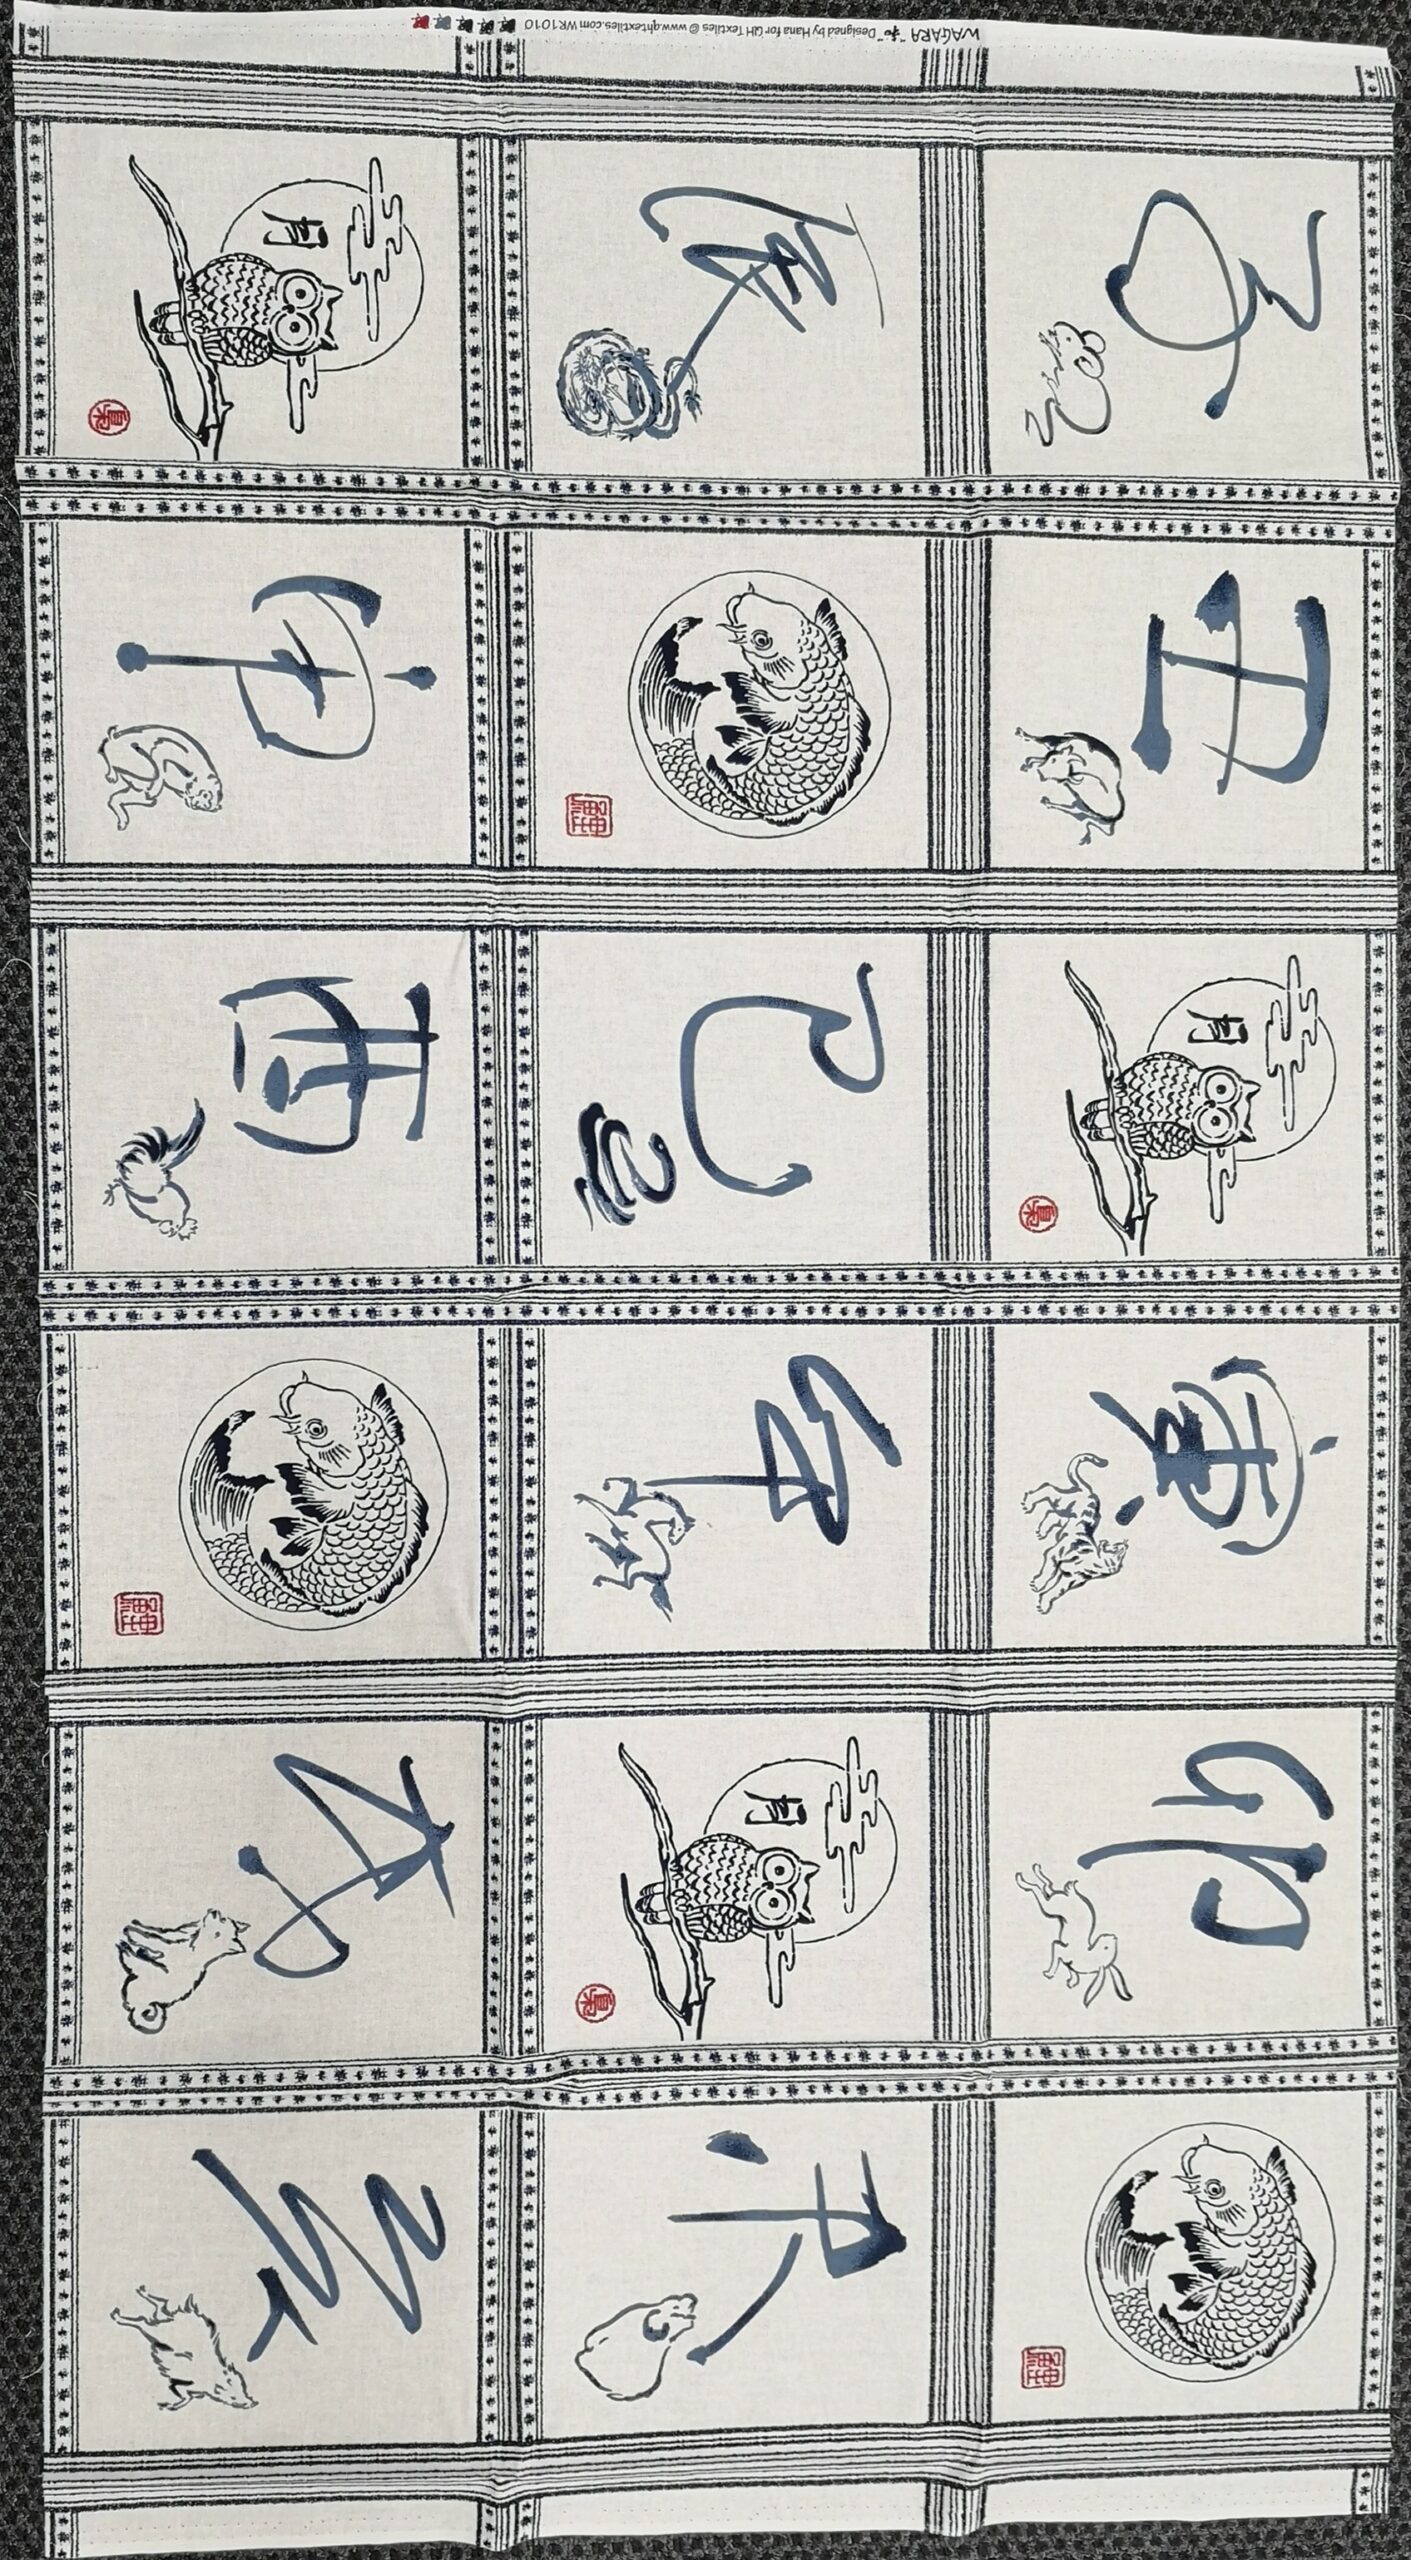 WAGARA "和" Designed by Hana for QH Textiles © www.qhtextiles.com WR1010
子
丑
月
寅
卯
辰
巳
午
月
未
月
申
酉
戌
亥